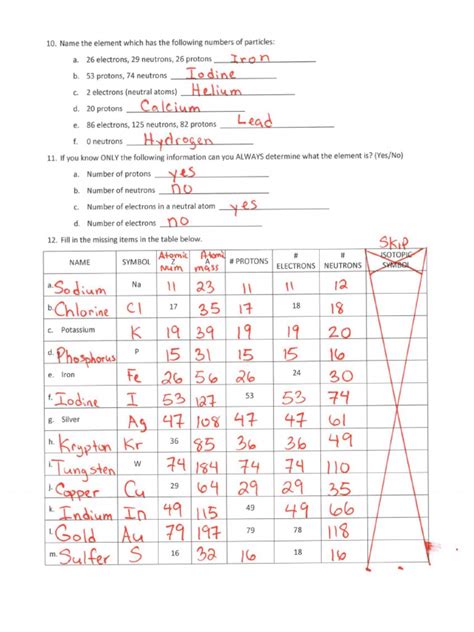 10. Name the element which has the following numbers of particles:
a. 26 electrons, 29 neutrons, 26 protons Iron
b. 53 protons, 74 neutrons Iodine
c. 2 electrons (neutral atoms) Helium
d. 20 protons Calcium
e. 86 electrons, 125 neutrons, 82 protons Lead
f. 0 neutrons Hydrogen
11. If you know ONLY the following information can you ALWAYS determine what the element is? (Yes/No)
a. Number of protons yes
b. Number of neutrons no
c. Number of electrons in a neutral atom yes
d. Number of electrons no
12. Fill in the missing items in the table below.
Skip
NAME SYMBOL Atomic Z num Atomic A mass # PROTONS # ELECTRONS # NEUTRONS ISOTOPIC SYMBOL
a. Sodium Na 11 23 11 11 12
b. Chlorine Cl 17 35 17 18 18
c. Potassium K 19 39 19 19 20
d. Phosphorus P 15 31 15 15 16
e. Iron Fe 26 56 26 24 30
f. Iodine I 53 127 53 53 74
g. Silver Ag 47 108 47 47 61
h. Krypton Kr 36 85 36 36 49
i. Tungsten W 74 184 74 74 110
j. Copper Cu 29 64 29 29 35
k. Indium In 49 115 49 49 66
l. Gold Au 79 197 79 78 118
m. Sulfer S 16 32 16 18 16